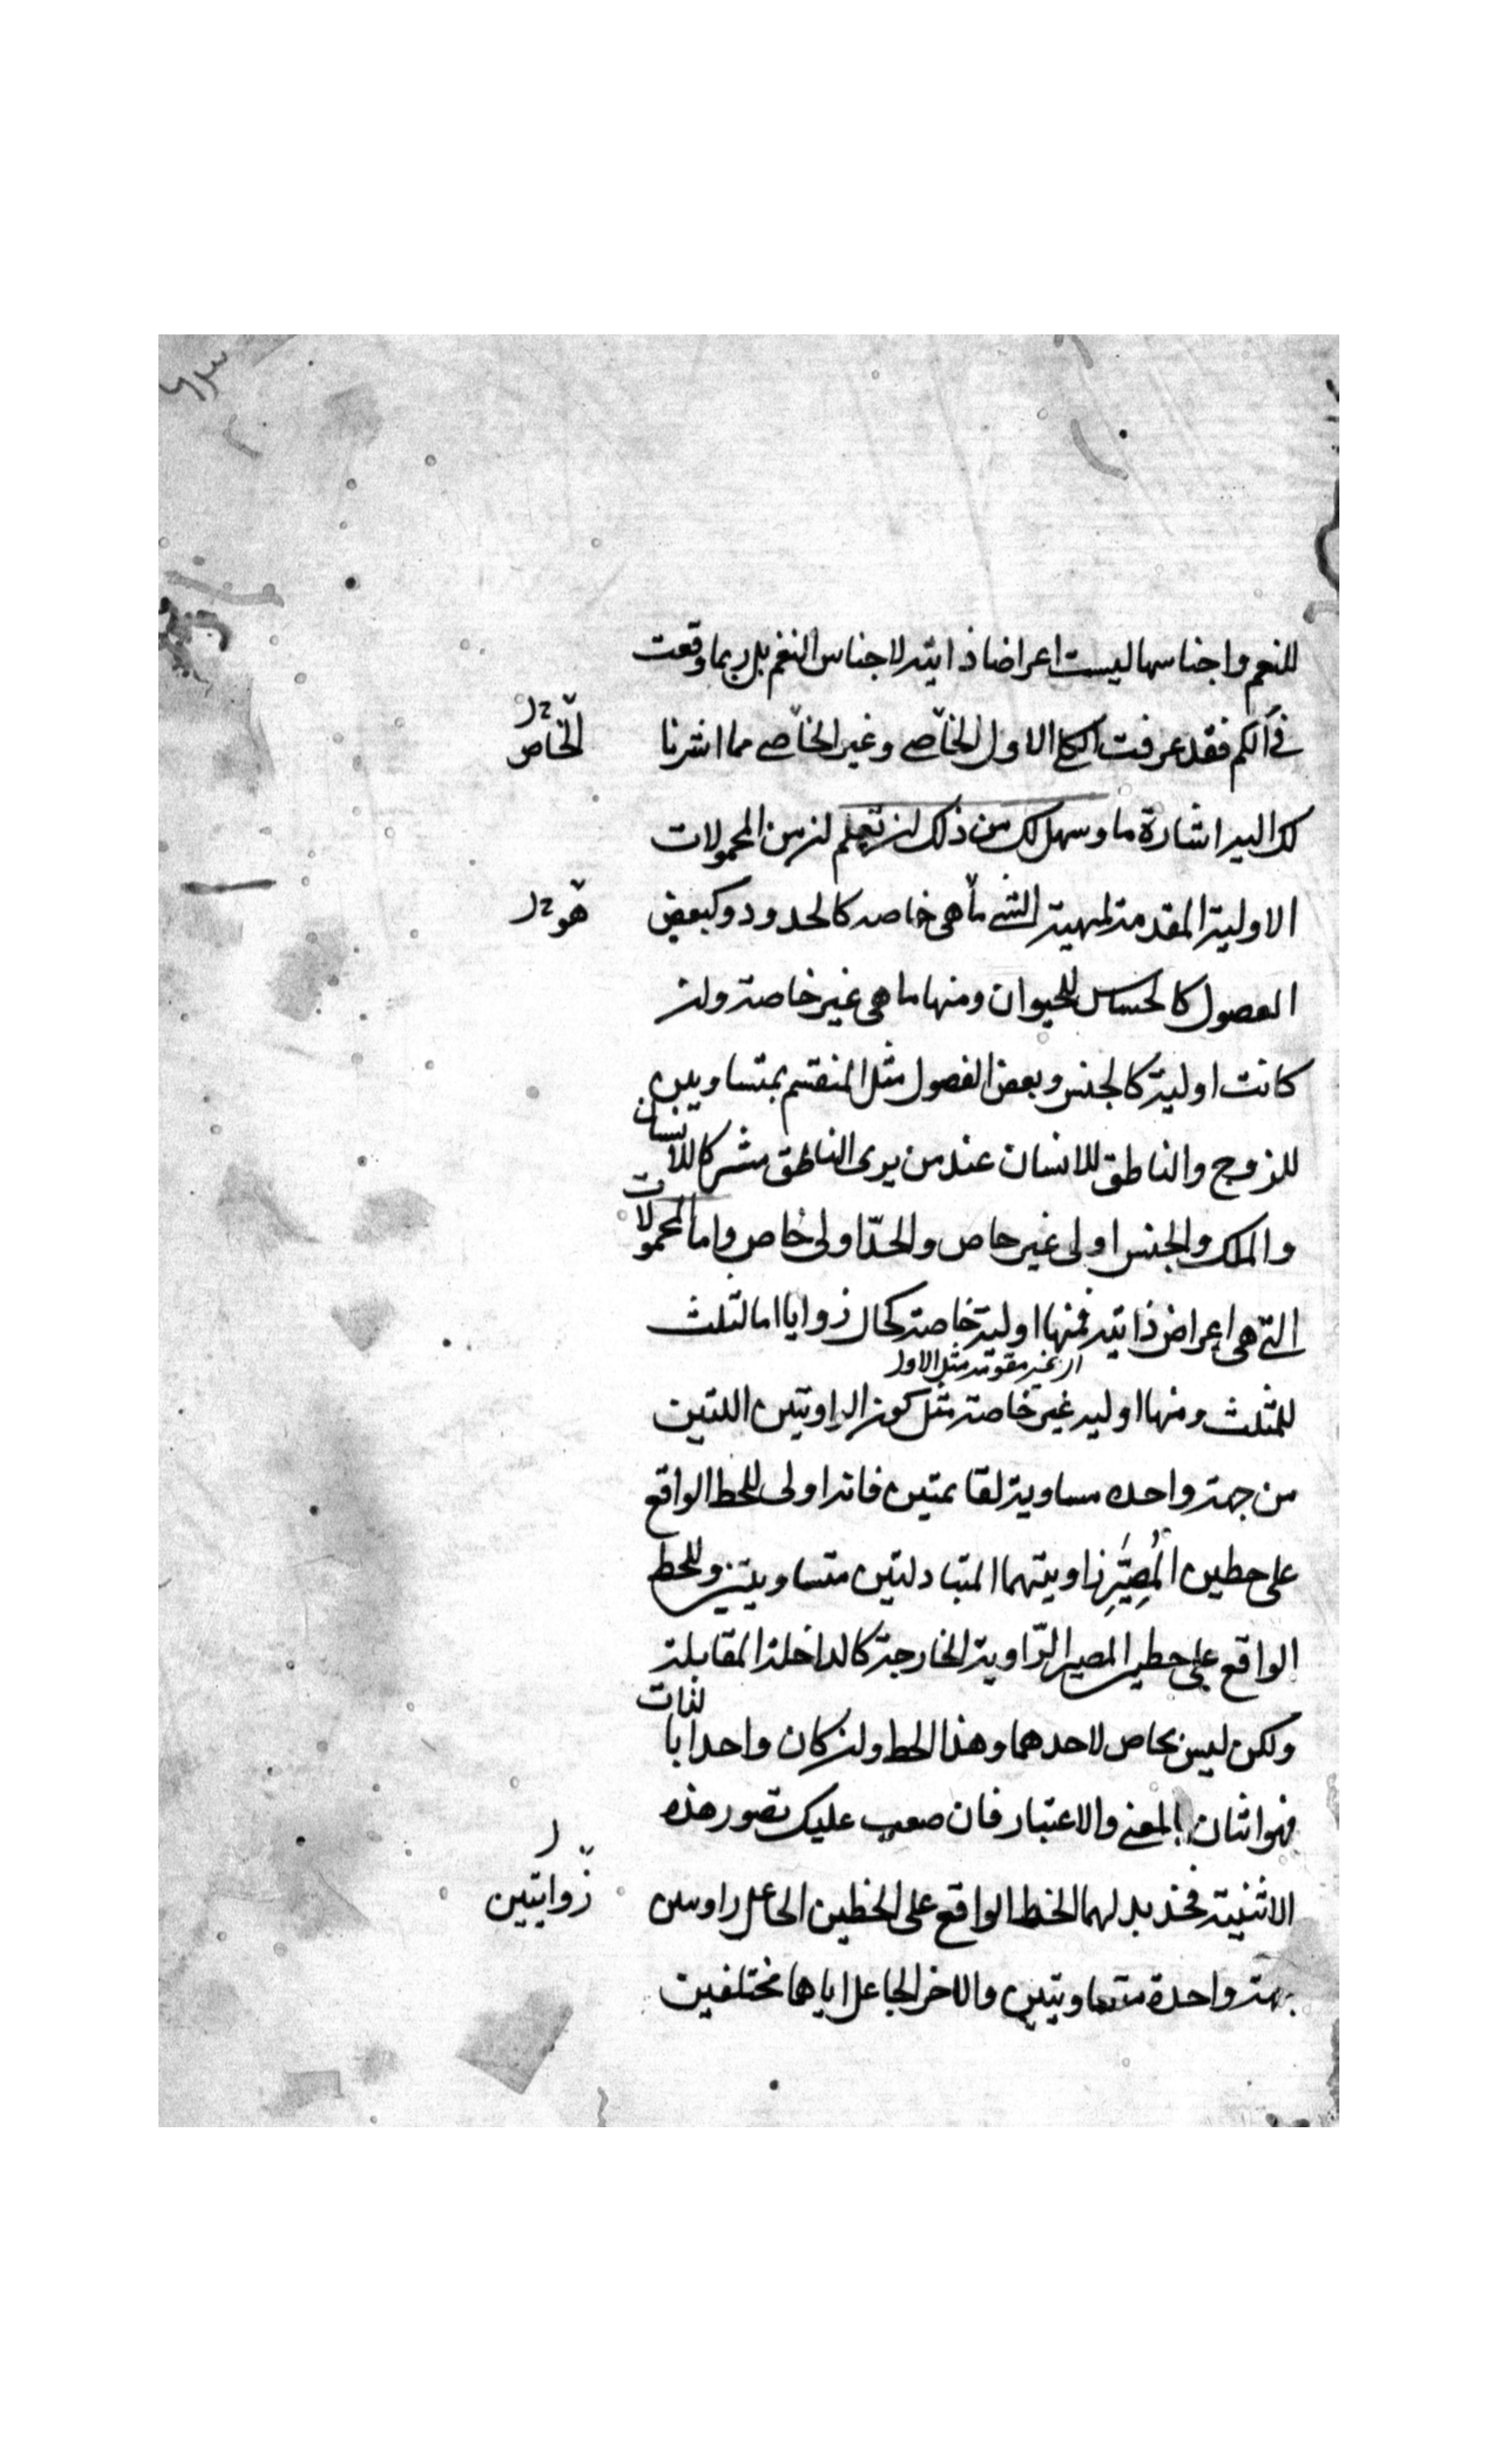 للنغم واجناسها ليست اعراضا ذاتية لاجناس النغم بل ربما وقعت
في الكم فقد عرفت الكلي الاول الخاصي وغير الخاصي مما اشرنا
الخاص
لك اليه اشارة ما وسهل لك من ذلك ان تعلم ان من المحمولات
الاولية المقدمة لمهية الشي ما هي خاصه كالحدود وكبعض
هو
الفصول كالحساس للحيوان ومنها ما هي غير خاصة وان
كانت اولية كالجنس وبعض الفصول مثل المنقسم بمتساويين
للزوج والناطق للانسان عند من يرى الناطق مشركا للانسان
والملك والجنس اولى غير خاص والحدّ اولى خاص واما المحمولات
التي هي اعراض ذاتية فمنها اولية خاصة كحال زوايا اما لثلث
اى غير مقومة مثل الاول
للمثلث ومنها اوليه غير خاصة مثل كون الزاويتين اللتين
من جهة واحده مساوية لقائمتين فانه اولى للخط الواقع
على خطين المُصَيِّرِ زاويتهما المتبادلتين متساويتين وللخط
الواقع على خطين المصير الزّاوية الخارجة كالداخلة المقابلة
ولكن ليس بخاص لاحدهما وهذا الخط وان كان واحدا بالذات
فهو اثنان بالمعنى والاعتبار فان صعب عليك تصور هذه
الاثنينية فخذ بدلهما الخط الواقع على الخطين الجاعل زاوسن
زوايتين
جهة واحدة متساويتين والاخر الجاعل اياها مختلفين